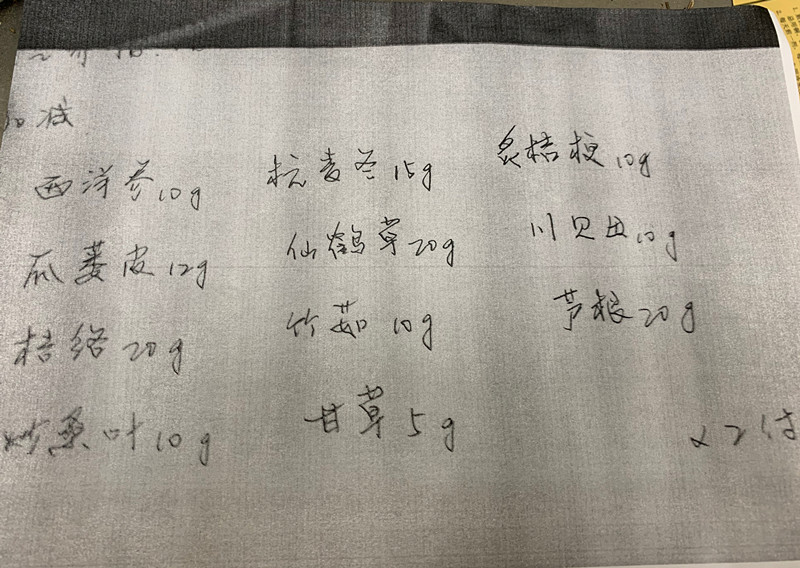 加减
西洋参10g 杭麦冬15g 炙桔梗10g
瓜蒌皮12g 仙鹤草20g 川贝母10g
桔络20g 竹茹10g 芦根20g
炒桑叶10g 甘草5g
x2付